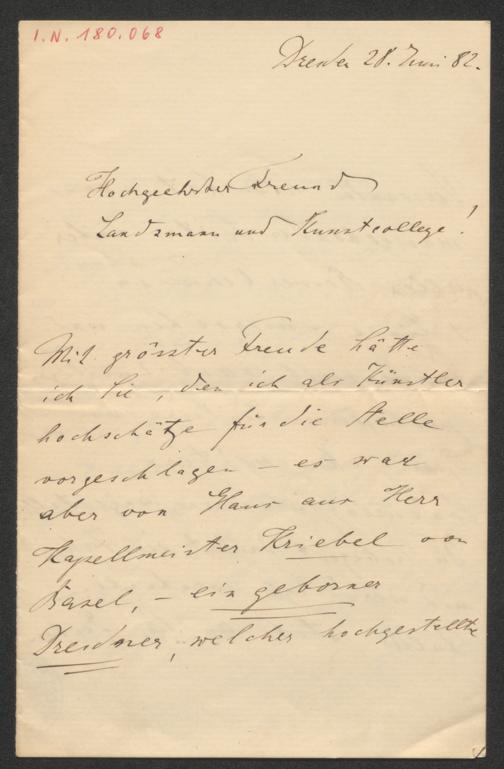 I.N. 180.068
Dresden 28. Juni 82.
Hochgeehrter Freund
Landsmann und Kunstcollege!
Mit grösster Freude hätte
ich Sie, den ich als Künstler
hochschätze für die Stelle
vorgeschlagen – es war
aber von Haus aus Herr
Kapellmeister Kriebel von
Basel, – ein geborner
Dresdner, welcher hochgestellte